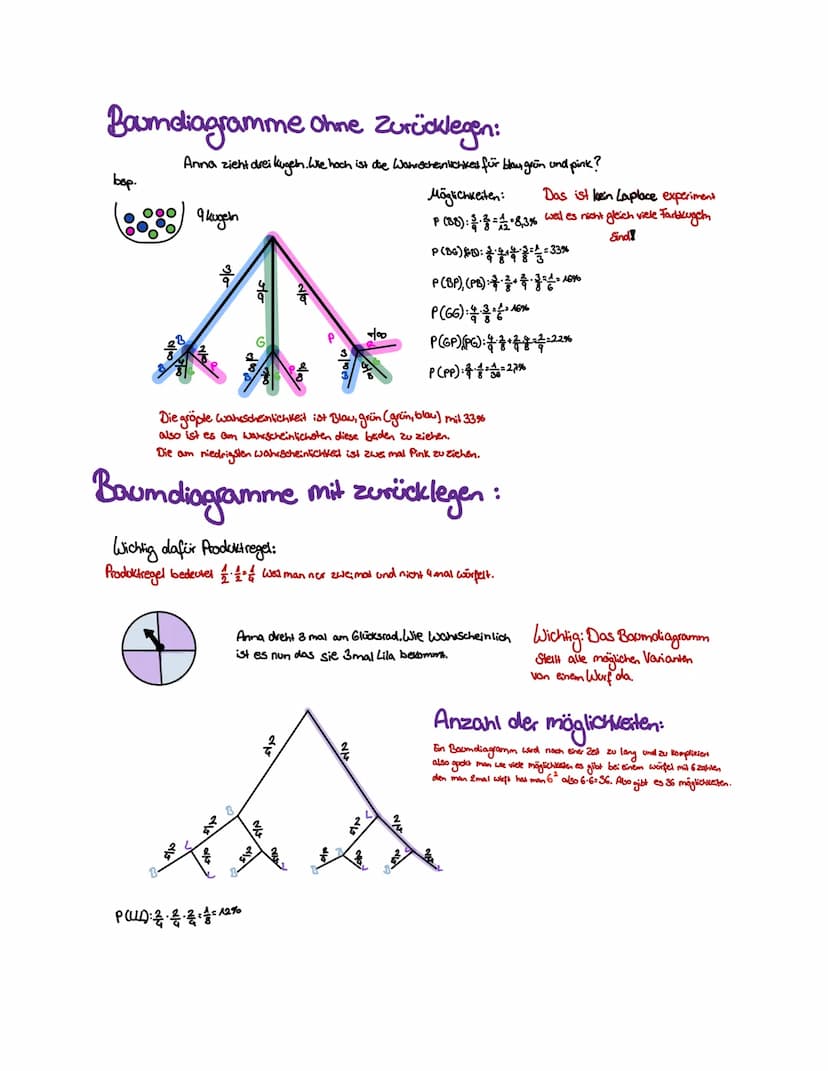 Baumdiagramme ohne Zurücklegen:
Anna zieht drei kugeln. Wie hoch ist die Wahrscheinlichkeit für blau, grün und pink?
bsp.
9 kugeln
Möglichkeiten:
Das ist kein Laplace experiment
weil es nicht gleich viele Farbkugeln
sind!
P(BB): 3/9 · 2/8 = 1/12 = 8,3%
P(BG)(GB): 3/9 · 4/8 + 4/9 · 3/8 = 1/3 = 33%
P(BP),(PB): 3/9 · 2/8 + 2/9 · 3/8 = 1/6 = 16%
P(GG): 4/9 · 3/8 = 1/6 = 16%
P(GP)(PG): 4/9 · 2/8 + 2/9 · 4/8 = 2/9 = 22%
P(PP): 2/9 · 1/8 = 1/36 = 2,7%
3/9 4/9 2/9
B G P
2/8 4/8 2/8 3/8 3/8 2/8 3/8 4/8 1/8
B G P B G P B G P
Die größte Wahrscheinlichkeit ist Blau, grün (grün, blau) mit 33%
also ist es am wahrscheinlichsten diese beiden zu ziehen.
Die am niedrigsten Wahrscheinlichkeit ist zwei mal Pink zu ziehen.
Baumdiagramme mit zurücklegen:
Wichtig dafür Produktregel:
Produktregel bedeutet 1/2 · 1/2 = 1/4 weil man nur zweimal und nicht 4 mal würfelt.
Anna dreht 3 mal am Glücksrad. Wie Wahrscheinlich
ist es nun das sie 3 mal Lila bekommt.
Wichtig: Das Baumdiagramm
stellt alle möglichen Varianten
von einem Wurf da.
Anzahl der möglichkeiten:
Ein Baumdiagramm wird nach einer Zeit zu lang und zu kompliziert
also guckt man wie viele möglichkeiten es gibt bei einem würfel mit 6 zahlen
den man 2mal wirft hat man 6² also 6·6=36. Also gibt es 36 möglichkeiten.
2/4 2/4
B L
2/4 2/4 2/4 2/4
L B L
2/4 2/4 2/4 2/4 2/4 2/4 2/4
B L B L B L B L
P(LLL): 2/4 · 2/4 · 2/4 = 1/8 = 12%